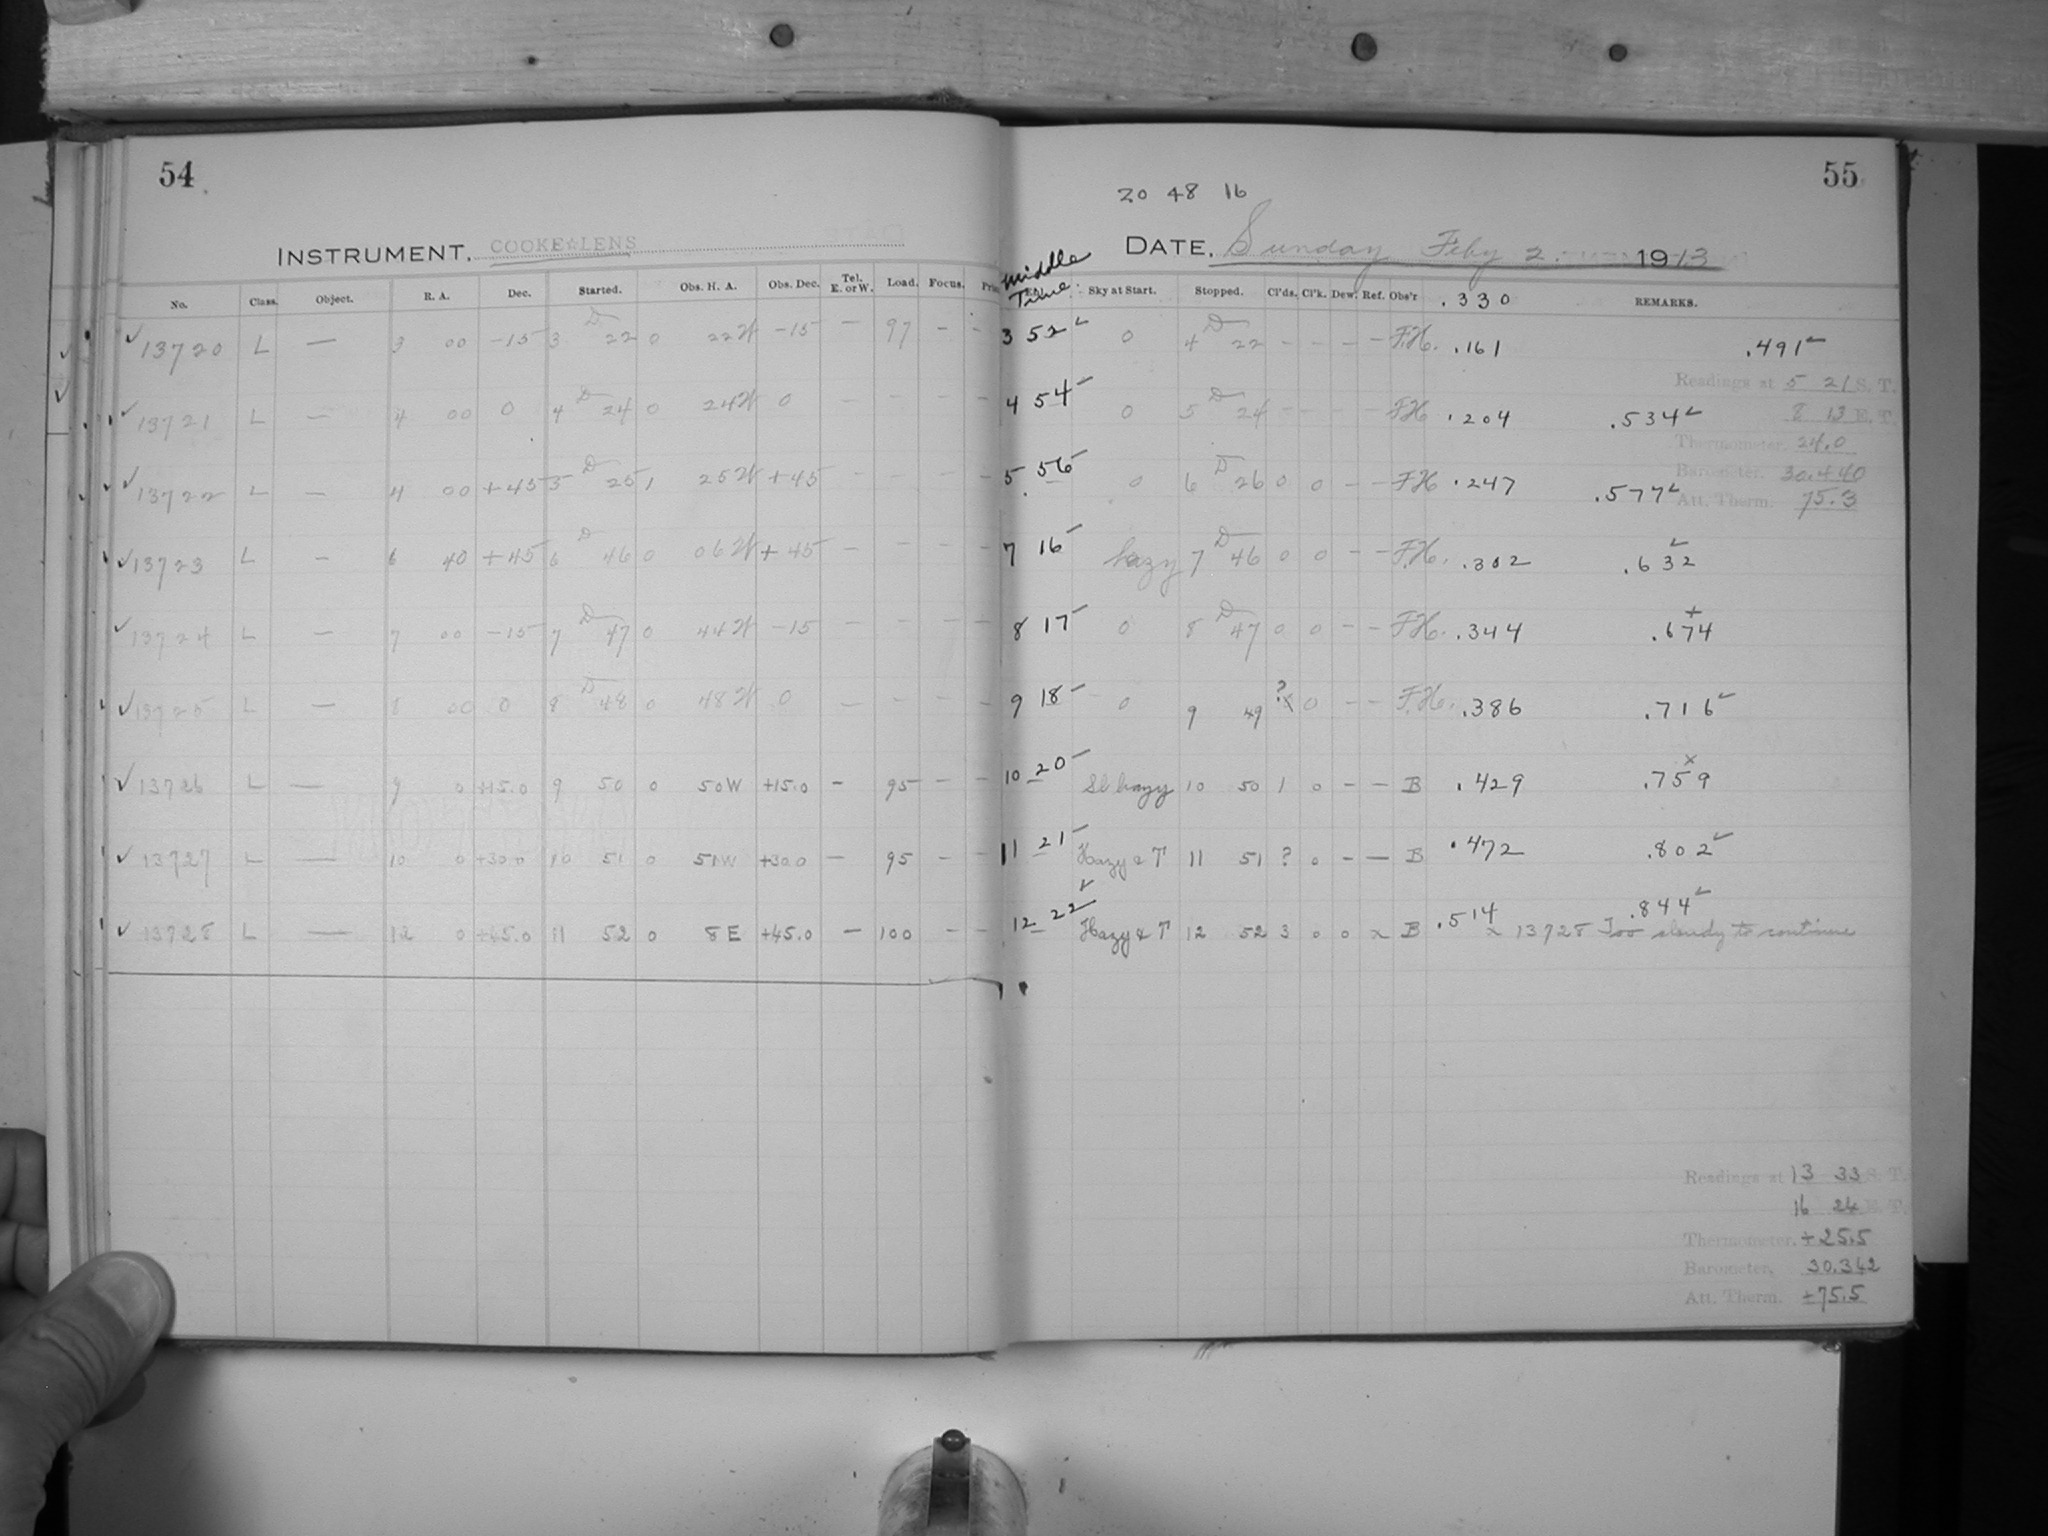 54
INSTRUMENT. COOKE☆LENS
No. Class. Object. R. A. Dec. Started. Obs. H. A. Obs. Dec. Tel. E. or W. Load. Focus.
✓ 13720 L — 3 00 −15 3 D 22 0 22W −15 — 97 - -
✓ 13721 L — 4 00 0 4 D 24 0 24W 0 - - - -
✓ 13722 L — 4 00 +45 5 D 25 1 25W +45 - - - -
✓ 13723 L — 6 40 +45 6 D 46 0 06W +45 - - - -
✓ 13724 L — 7 00 −15 7 D 47 0 44W −15 - - - -
✓ 13725 L — 8 00 0 8 D 48 0 48W 0 - - - -
✓ 13726 L — 9 0 +15.0 9 50 0 50W +15.0 - 95 - -
✓ 13727 L — 10 0 +30.0 10 51 0 51W +30.0 — 95 - -
✓ 13728 L — 12 0 +45.0 11 52 0 8E +45.0 — 100 - -
55
20 48 16
DATE. Sunday Feby 2. 1913
Middle Time. Sky at Start. Stopped. Cl'ds. Cl'k. Dew. Ref. Obs'r .330 REMARKS.
3 52 0 4 D 22 - - - - F.H. .161 .491
Readings at 5 21 S. T.
8 13 E. T.
4 54 0 5 D 24 - - - - FH .204 .534
Thermometer. 24.0
Barometer. 30.440
5 56 0 6 D 26 0 0 - - FH .247 .577
Att. Therm. 75.3
7 16 hazy 7 D 46 0 0 - - F.H. .302 .632
8 17 0 8 D 47 0 0 - - F.H. .344 .674
9 18 0 9 49 ? x 0 - - F.H. .386 .716
10 20 Sl hazy 10 50 1 0 - - B .429 .759
11 21 Hazy & T 11 51 ? 0 - - B .472 .802
12 22 Hazy & T 12 52 3 0 0 x B .514 .844
x 13728 Too cloudy to continue
Readings at 13 33 S. T.
16 24 E. T.
Thermometer. +25.5
Barometer. 30.342
Att. Therm. +75.5